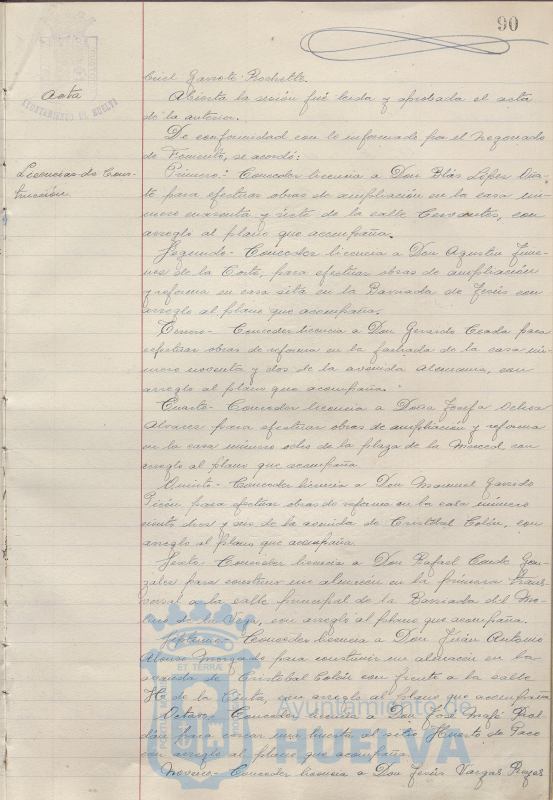 90
AYUNTAMIENTO DE HUELVA
Acta
Garrote Rochette.
Abierta la sesión fué leida y aprobada el acta
de la anterior.
De conformidad con lo informado por el Negociado
de Fomento, se acordó:
Licencias de Cons-
trucción
Primero: Conceder licencia a Don Blás López Oña-
te para efectuar obras de ampliación en la casa nú-
mero y siete de la calle Cervantes, con
arreglo al plano que acompaña.
Segundo- Conceder licencia a Don Agustin Jime-
nez de la Corte, para efectuar obras de ampliación
y reforma en casa sita en la Barriada de Jesús con
arreglo al plano que acompaña.
Tercero- Conceder licencia a Don Gerardo Ceada para
efectuar obras de reforma en la fachada de la casa nú-
mero noventa y dos de la avenida Alemania, con
arreglo al plano que acompaña.
Cuarto- Conceder licencia a Doña Josefa Ochoa
Alvarez para efectuar obras de ampliación y reforma
en la casa número ocho de la plaza de la Merced con
arreglo al plano que acompaña
Quinto- Conceder licencia a Don Manuel Garrido
Picón para efectuar obras de reforma en la casa número
ciento diez y seis de la avenida de Cristobal Colón, con
arreglo al plano que acompaña.
Sexto- Conceder licencia a Don Rafael Gon-
zalez para construir un almacén en la primera trans-
versal a la calle principal de la Barriada del Mo-
lino de la Vega, con arreglo al plano que acompaña.
Septimo- Conceder licencia a Don Juán Antonio
Alonso Morgado para construir un almacén en la
avenida de Cristobal Colón con frente a la calle
de la Cinta, con arreglo al plano que acompaña
Octavo- Conceder licencia a Don José Mafé Rol
dán para cercar una huerta al sitio Huerto de Paco
con arreglo al plano que acompaña
Noveno- Conceder licencia a Don Jesús Vargas
PORTUS MARIS ET TERRAE
Ayuntamiento de
HUELVA